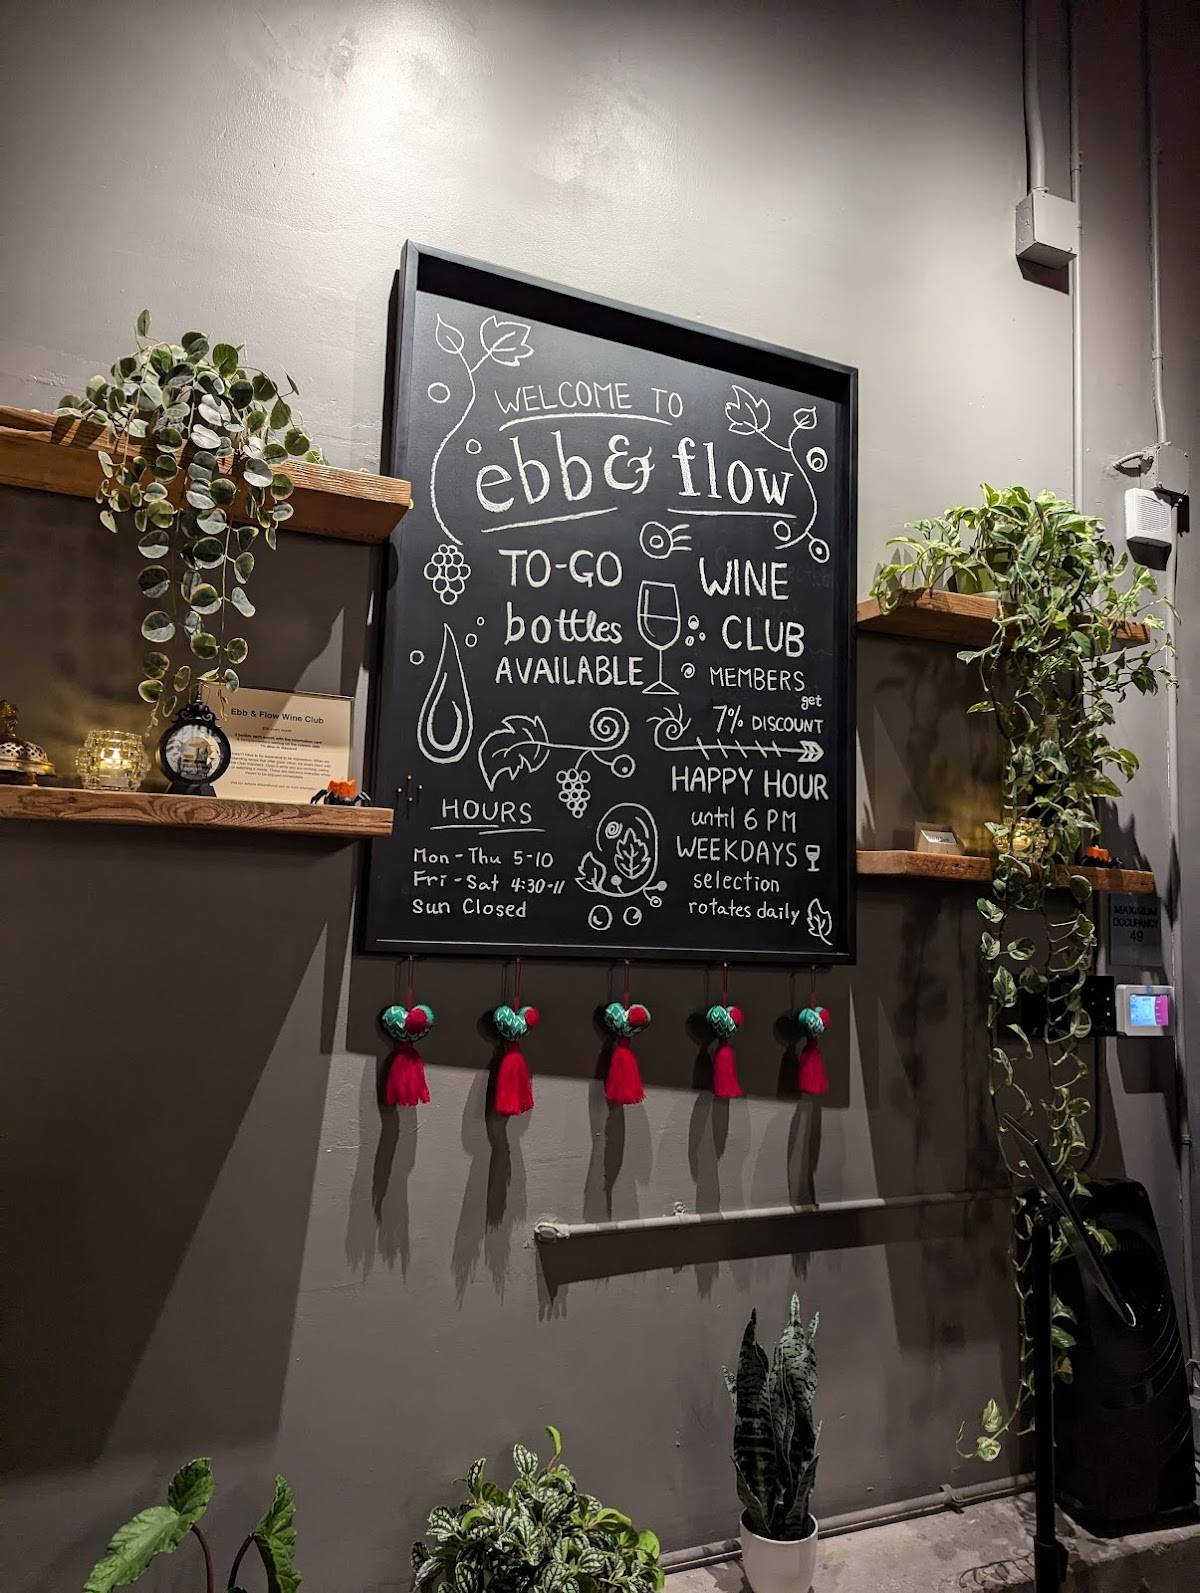 WELCOME TO
ebb & flow
TO-GO
bottles
AVAILABLE
WINE
CLUB
MEMBERS
get
7% DISCOUNT
HAPPY HOUR
until 6 PM
WEEKDAYS
selection
rotates daily
HOURS
Mon-Thu 5-10
Fri-Sat 4:30-11
Sun Closed
Ebb & Flow Wine Club
MAXIMUM
OCCUPANCY
49